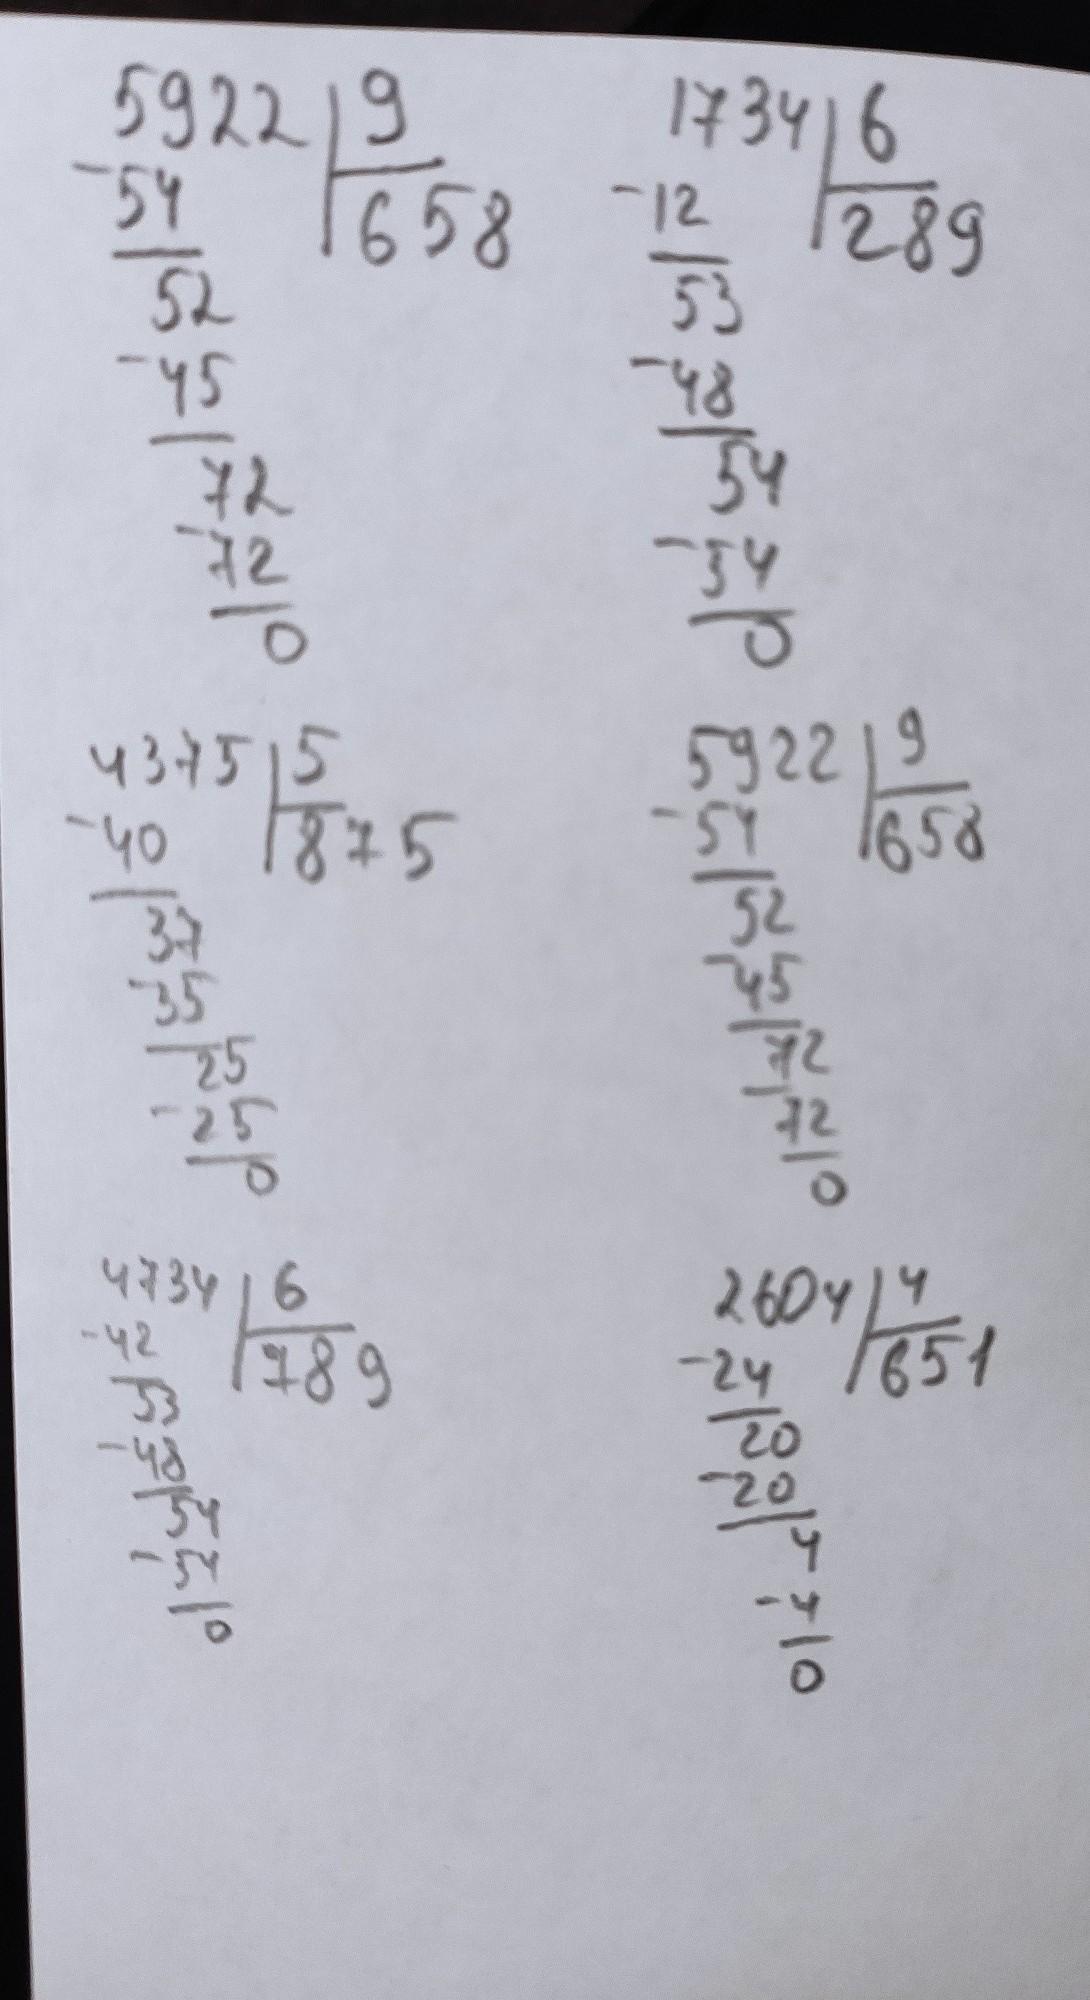 5922 | 9
-54 | 658
52
-45
72
-72
0
1734 | 6
-12 | 289
53
-48
54
-54
0
4375 | 5
-40 | 875
37
-35
25
-25
0
5922 | 9
-54 | 658
52
-45
72
-72
0
4734 | 6
-42 | 789
53
-48
54
-54
0
2604 | 4
-24 | 651
20
-20
4
-4
0